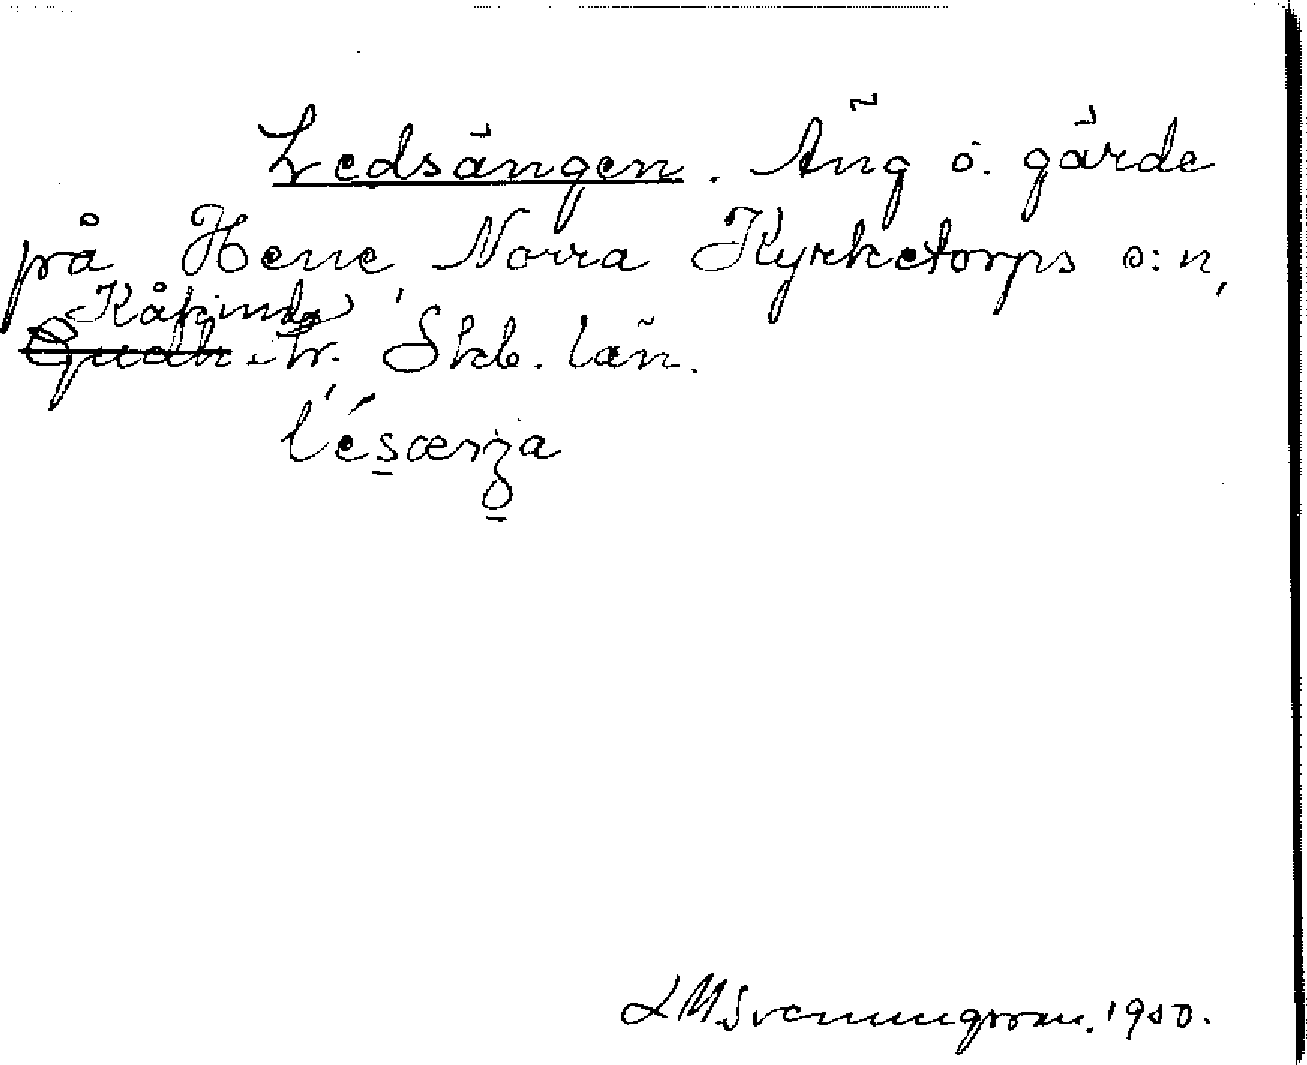 Ledsängen. Äng o. gärde
på Hene, Norra Kyrketorps s:n,
Kåkinds
Gudh. hr. Skb. län.
L M Svenungsson. 1910.